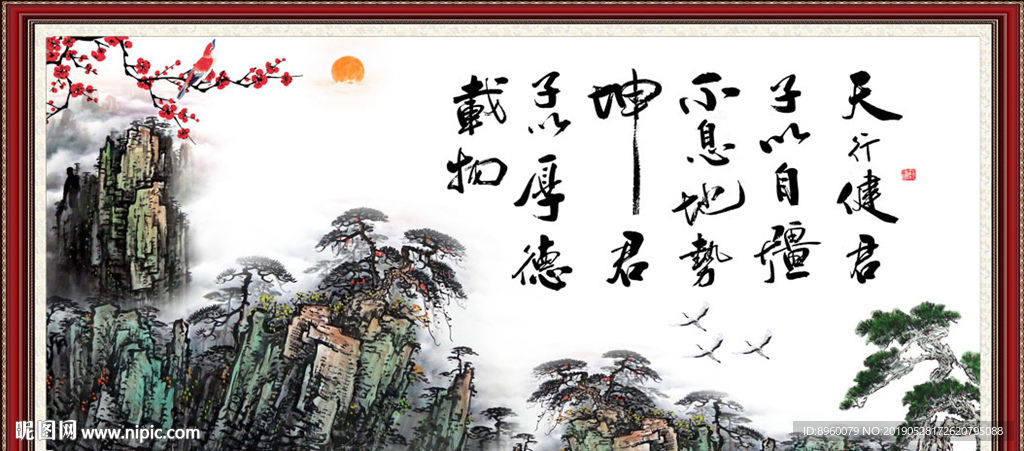 天行健君
子以自彊
不息地勢
坤君
子以厚德
載物
昵图网 www.nipic.com
ID:8960079 NO:20190528172620795088